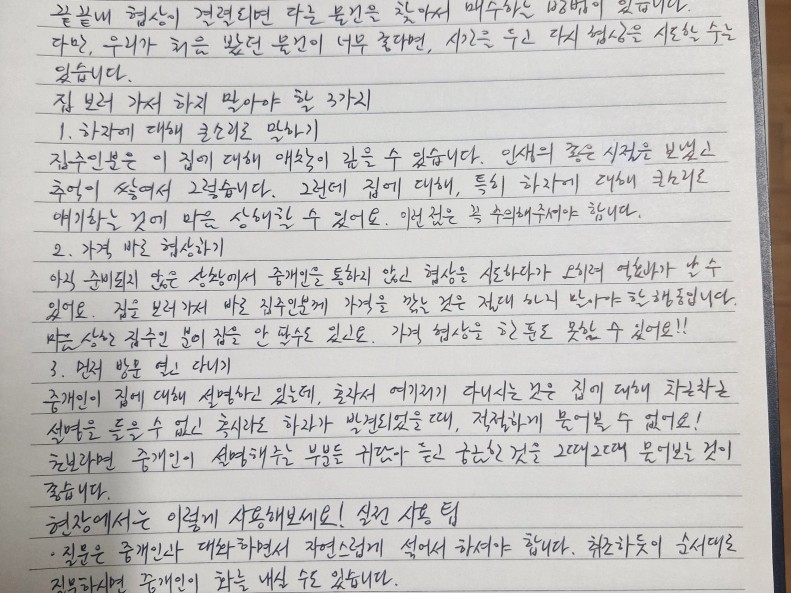 끝끝내 협상이 결렬되면 다른 물건을 찾아서 매수하는 방법이 있습니다.
다만, 우리가 처음 봤던 물건이 너무 좋다면, 시간을 두고 다시 협상을 시도할 수는
있습니다.
집 보러 가서 하지 말아야 할 3가지
1. 하자에 대해 큰소리로 말하기
집주인분은 이 집에 대해 애착이 깊을 수 있습니다. 인생의 좋은 시절을 보냈고
추억이 쌓여서 그렇습니다. 그런데 집에 대해, 특히 하자에 대해 큰소리로
얘기하는 것에 마음 상해할 수 있어요. 이런 점은 꼭 주의해주셔야 합니다.
2. 가격 바로 협상하기
아직 준비되지 않은 상황에서 중개인을 통하지 않고 협상을 시도하다가 오히려 역효과가 날 수
있어요. 집을 보러가서 바로 집주인분께 가격을 깎는 것은 절대 하지 말아야 할 행동입니다.
마음 상한 집주인 분이 집을 안 팔수도 있고요. 가격 협상을 한 푼도 못할 수 있어요!!
3. 먼저 방문 열고 다니기
중개인이 집에 대해 설명하고 있는데, 혼자서 여기저기 다니시는 것은 집에 대해 차근차근
설명을 들을 수 없고 혹시라도 하자가 발견되었을 때, 적절하게 물어볼 수 없어요!
초보라면 중개인이 설명해주는 부분들 귀담아 듣고 궁금한 것을 그때그때 물어보는 것이
좋습니다.
현장에서는 이렇게 사용해보세요! 실전 사용 팁
· 질문은 중개인과 대화하면서 자연스럽게 섞어서 하셔야 합니다. 취조하듯이 순서대로
질문하시면 중개인이 화를 내실 수도 있습니다.